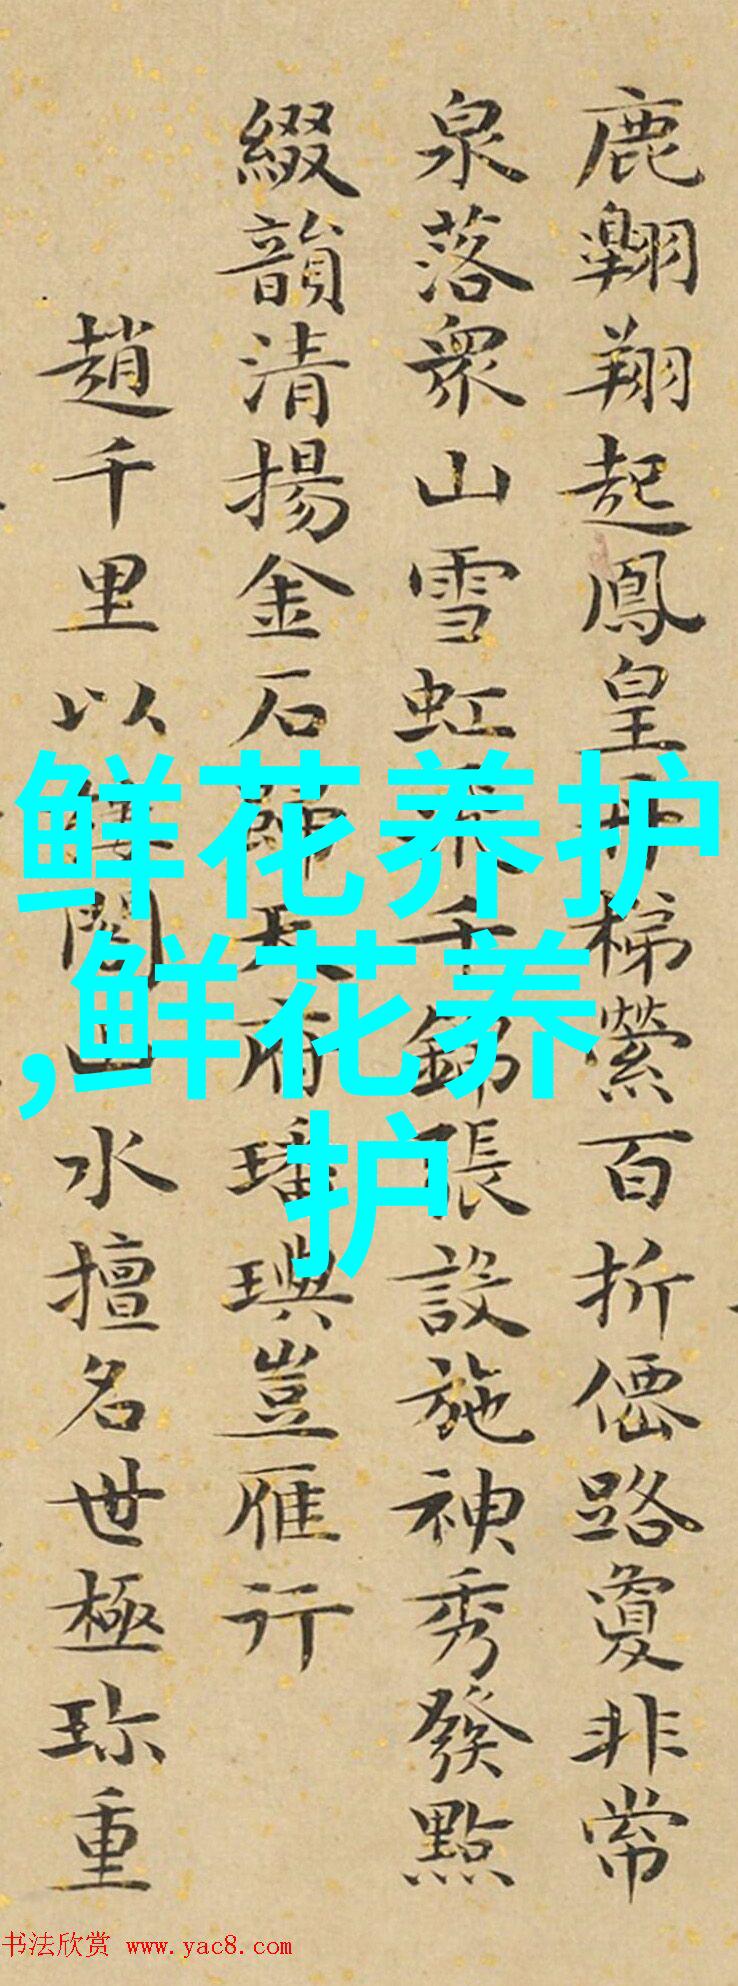 鹿翱翔起鳳皇丹梯縈百折僊路夐非常
泉落衆山雪虹千錦張設施神秀發點
綴韻清揚金石天府璠璵豈雁行
趙千里以樓閣山水擅名世極珎重
鲜花养护
,鲜花养
护
书法欣赏 www.yac8.com